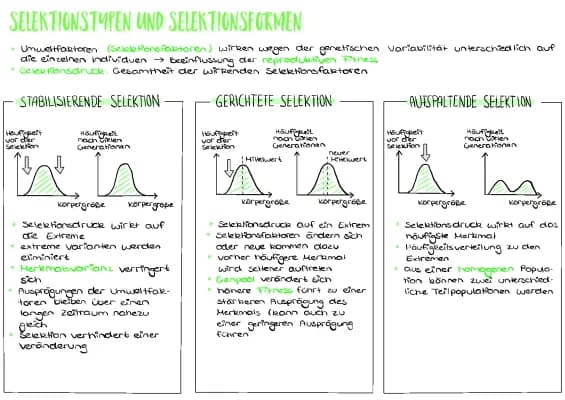 SELEKTIONSTYPEN UND SELEKTIONSFORMEN
• Umweltfaktoren (Selektionsfaktoren) wirken wegen der genetischen Variabilität unterschiedlich auf
die einzelnen Individuen → Beeinflussung der reproduktiven Fitness
• Selektionsdruck: Gesamtheit der wirkenden Selektionsfaktoren
STABILISIERENDE SELEKTION
Häufigkeit
vor der
Selektion
Häufigkeit
nach vielen
Generationen
Körpergröße
Körpergröße
• Selektionsdruck wirkt auf
die Extreme
• extreme Varianten werden
eliminiert
• Merkmalsvarianz verringert
sich
• Ausprägungen der Umweltfak-
toren bleiben über einen
langen Zeitraum nahezu
gleich
• Selektion verhindert einer
Veränderung
GERICHTETE SELEKTION
Häufigkeit
vor der
Selektion
Mittelwert
Häufigkeit
nach vielen
Generationen
neuer
Mittelwert
Körpergröße
Körpergröße
• Selektionsdruck auf ein Extrem
• Selektionsfaktoren ändern sich
oder neue kommen dazu
• vorher häufigere Merkmal
wird seltener auftreten
• Genpool verändert sich
• höhere Fitness führt zu einer
stärkeren Ausprägung des
Merkmals (kann auch zu
einer geringeren Ausprägung
führen
AUFSPALTENDE SELEKTION
Häufigkeit
vor der
Selektion
Häufigkeit
nach vielen
Generationen
Körpergröße
Körpergröße
• Selektionsdruck wirkt auf das
häufigste Merkmal
• Häufigkeitsverteilung zu den
Extremen
• aus einer homogenen Popula-
tion können zwei unterschied-
liche Teilpopulationen werden